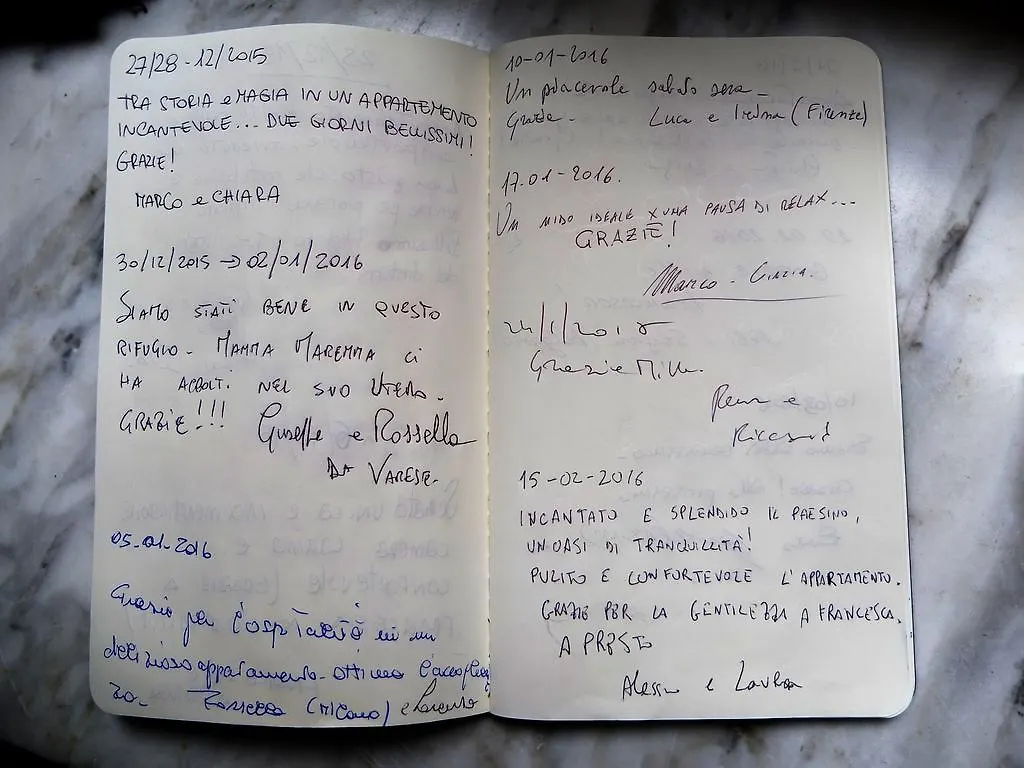 27/28-12/2015
TRA STORIA e MAGIA IN UN APPARTEMENTO
INCANTEVOLE... DUE GIORNI BELLISSIMI!
GRAZIE!
MARCO e CHIARA
30/12/2015 → 02/01/2016
SIAMO STATI BENE IN QUESTO
RIFUGIO. MAMMA MAREMMA CI
HA ACCOLTI NEL SUO UTERO.
GRAZIE!!! Giuseppe e Rossella
DA VARESE.
05.01.2016
Grazie per l'ospitalità in un
delizioso appartamento. ottima
(MILANO) e Lorenzo
10-01-2016
Un piacevole sabato sera_
Grazie. Luca e (Firenze)
17.01-2016.
UN NIDO IDEALE X UNA PAUSA DI RELAX...
GRAZIE!
Marco - Cinzia.
Grazie Mille.
e
15-02-2016
INCANTATO E SPLENDIDO IL PAESINO,
UN'OASI DI TRANQUILLITÀ!
PULITO E CONFORTEVOLE L'APPARTAMENTO.
GRAZIE PER LA GENTILEZZA A FRANCESCA.
A PRESTO
e Laura